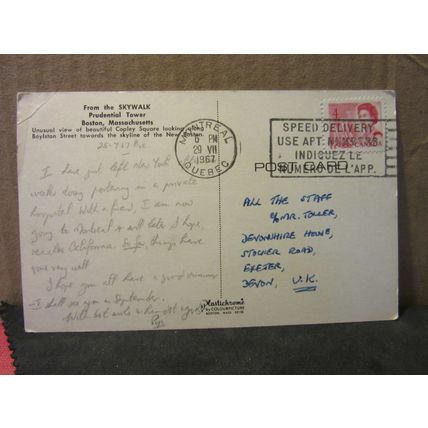 From the SKYWALK
Prudential Tower
Boston, Massachusetts
Unusual view of beautiful Copley Square looking along
Boylston Street towards the skyline of the New Boston.
I have just left New York
was doing portering in a private
hospital. With a friend, I am now
going to Montreal & will later, I hope,
reach California. So far, things have
gone very well.
I hope you all have a good summer
I shall see you in September.
With best wishes & kindest regards
MONTREAL
PM
29 VII
1967
QUEBEC
SPEED DELIVERY
USE APT. NUMBERS
INDIQUEZ LE
NUMÉRO DE L'APP.
4
CANADA
POST CARD
ALL THE STAFF
c/o MR. TOLLER,
DEVONSHIRE HOUSE,
STOCKER ROAD,
EXETER,
DEVON, U.K.
Plastichrome
By COLOURPICTURE
BOSTON, MASS.